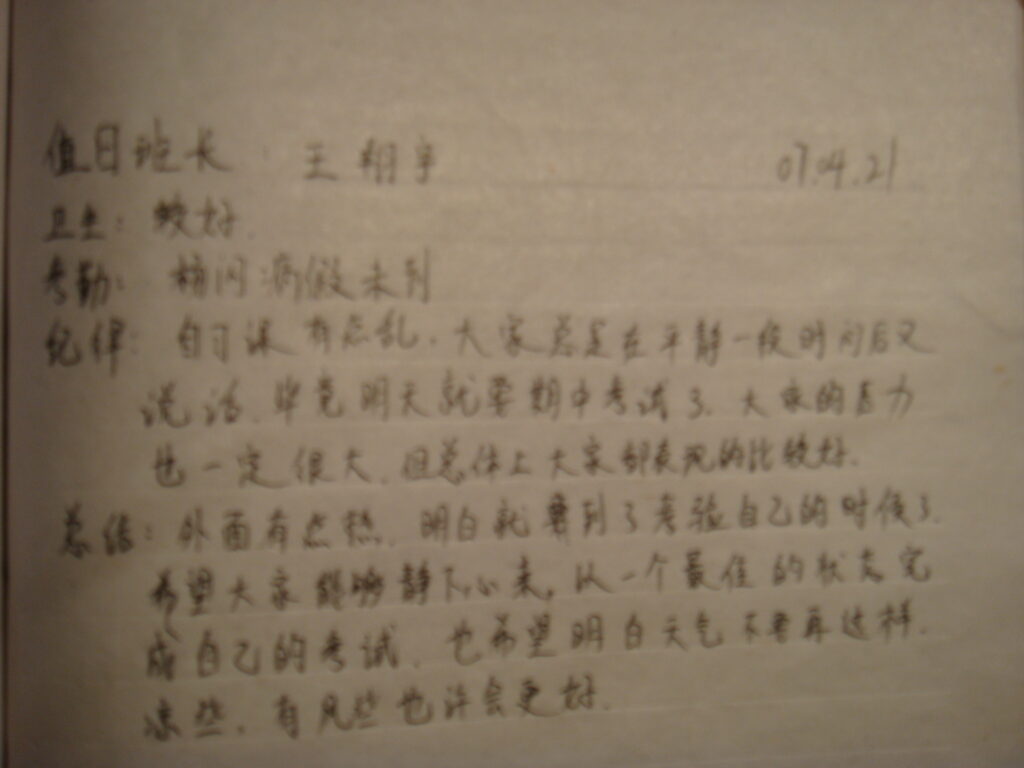 值日班长：王翔宇 07.04.21
卫生：较好.
考勤：杨闪病假未到
纪律：自习课有点乱.大家总是在平静一段时间后又
说话.毕竟明天就要期中考试了.大家的压力
也一定很大.但总体上大家都表现的比较好.
总结：外面有点热.明白就要到了考验自己的时候了.
希望大家能够静下心来，以一个最佳的状态完
成自己的考试.也希望明白天气不要再这样.
凉些，有风些也许会更好.